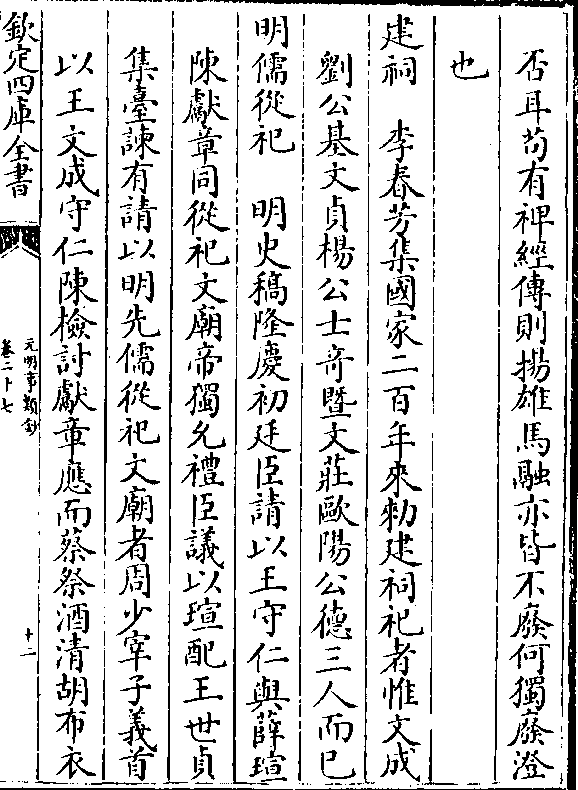 否耳苟有裨經傳則揚雄馬融亦皆不廢何獨廢澄
也
建祠　李春芳集國家二百年來勅建祠祀者惟文成
劉公基文貞楊公士竒暨文莊歐陽公德三人而已
明儒從祀　明史稿隆慶初廷臣請以王守仁與薛瑄
陳獻章同從祀文廟帝獨允禮臣議以瑄配王世貞
集臺諫有請以明先儒從祀文廟者周少宰子義首
以王文成守仁陳檢討獻章應而蔡祭酒清胡布衣
欽定四庫全書
元明事類鈔
卷二十七
十二